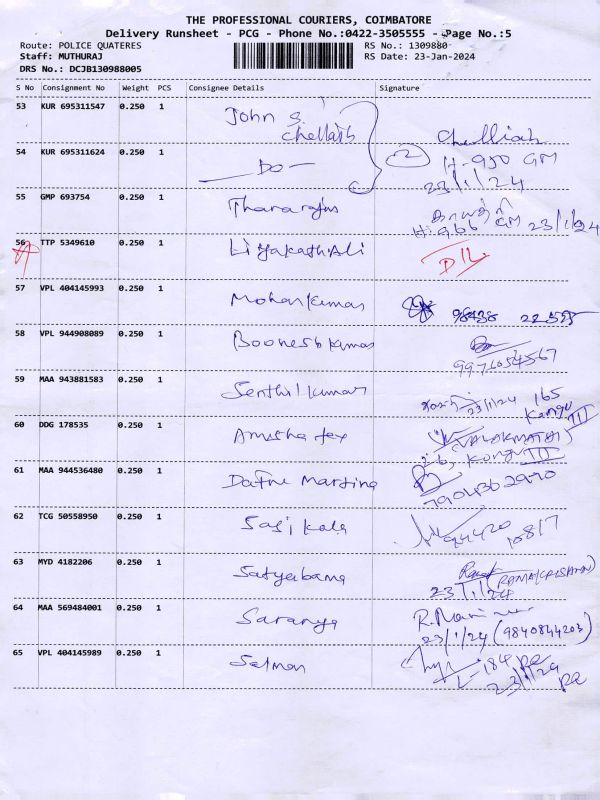 THE PROFESSIONAL COURIERS, COIMBATORE
Delivery Runsheet - PCG - Phone No.:0422-3505555 - Page No.:5
Route: POLICE QUATERES
RS No.: 1309880
Staff: MUTHURAJ
RS Date: 23-Jan-2024
DRS No.: DCJB130988005
S No Consignment No Weight PCS Consignee Details Signature
53 KUR 695311547 0.250 1 John S. Chelliah
Chelliah
54 KUR 695311624 0.250 1 — Do — 2 H-950 GM
23/1/24
55 GMP 693754 0.250 1 Thararajus
H: 966 GM 23/1/24
56 TTP 5349610 0.250 1 Liyakath Ali
57 VPL 404145993 0.250 1 Mohan Kumar 98438 22595
58 VPL 944908089 0.250 1 Boonesh Kumar
9976054567
59 MAA 943881583 0.250 1 Senthil Kumar 23/1/24 165
60 DDG 178535 0.250 1 Anusha fex (VALARMATHI)
61 MAA 944536480 0.250 1 Dafne Martina
62 TCG 50558950 0.250 1 Sasi Kala 94420
10817
63 MYD 4182206 0.250 1 Satyabama (RAMAKRISHANN)
23/1/24
64 MAA 569484001 0.250 1 Saranya
23/1/24 (9840844203)
65 VPL 404145989 0.250 1 Salman L-184 PR
23/1/24